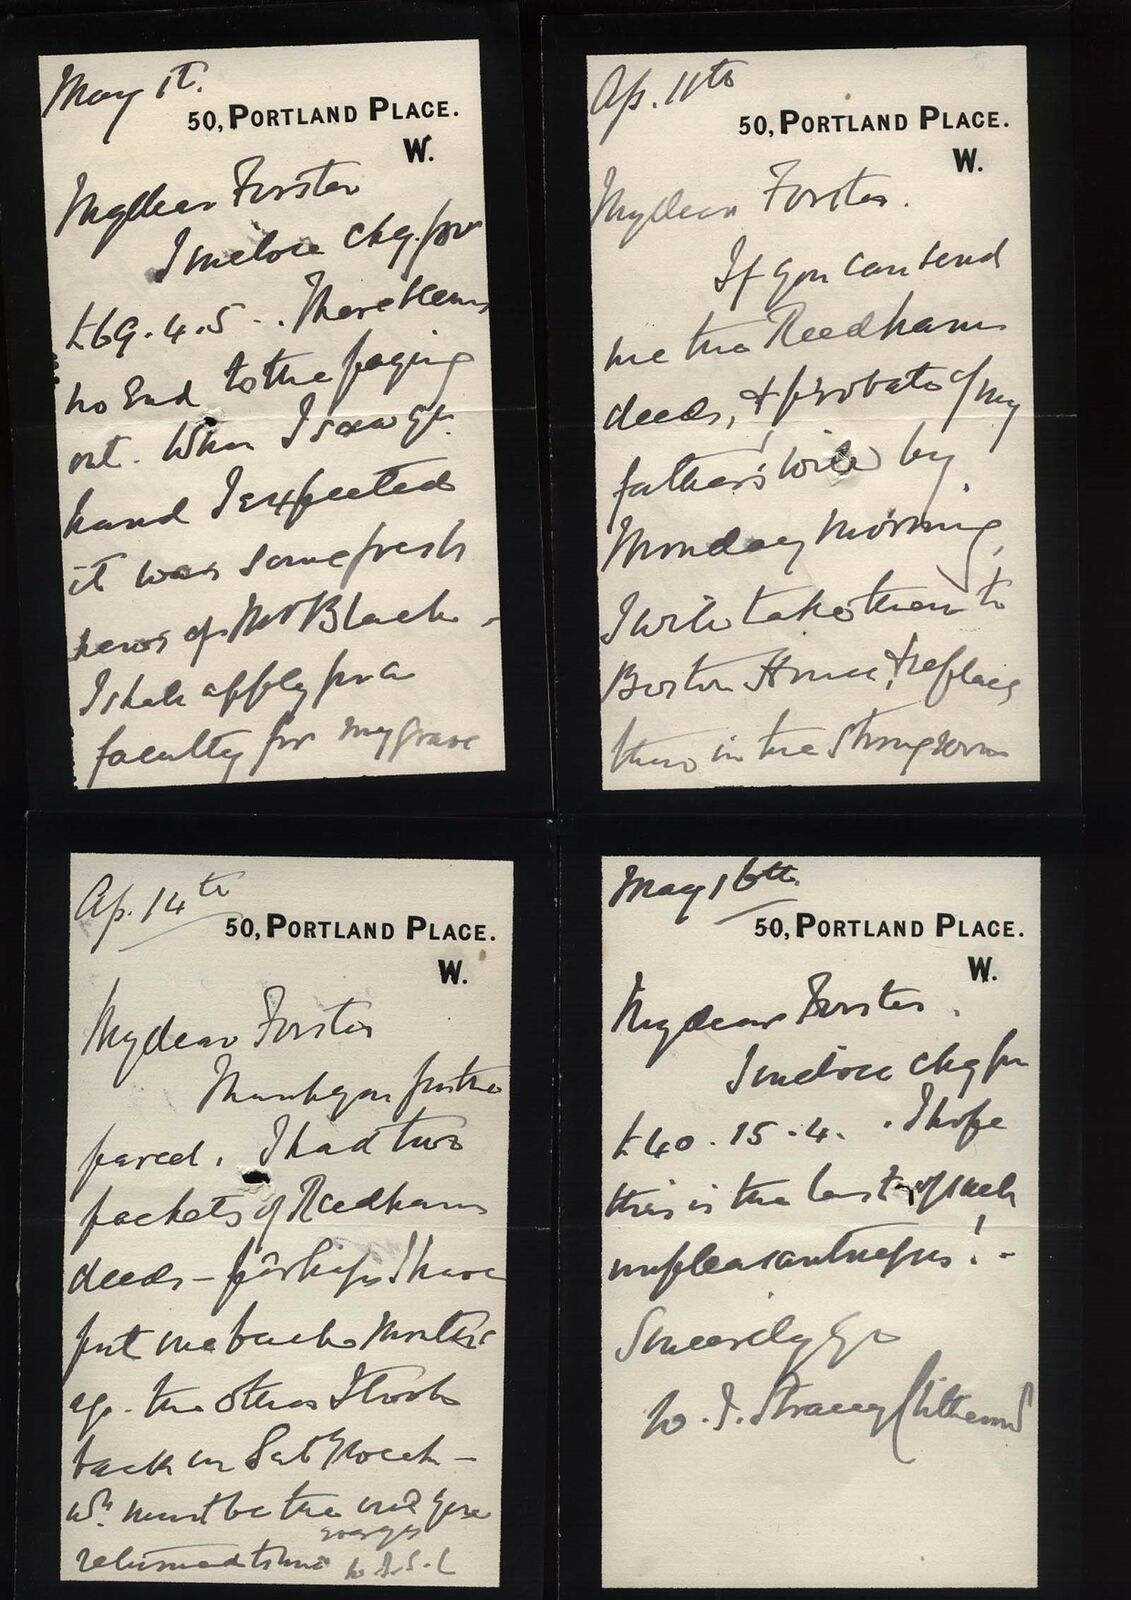 May 1st.
50, PORTLAND PLACE.
W.
My dear Forster
I inclose chq. for
£69.4.5 -. There seems
no End to the paying
out. When I saw yr.
hand I expected
it was some fresh
news of Mr Black -
I shall apply for a
faculty for my grave
Ap. 11th
50, PORTLAND PLACE.
W.
My dear Forster.
If you can send
me the Reedham
deeds, & probate of my
father's will by
Monday morning,
I will take them to
Boston House, & replace
them in the strong room
Ap. 14th
50, PORTLAND PLACE.
W.
My dear Forster
Thank you for the
parcel. I had two
packets of Reedham
deeds - perhaps I have
put one back months
ago. the other I took
back on Sat. week -
wh. must be the one you
returned to me
W. J. S. C
May 16th.
50, PORTLAND PLACE.
W.
My dear Forster.
I inclose chq for
£40.15.4. I hope
this is the last of such
unpleasantnesses! -
Sincerely Yrs
W. J. Stracey Clitherow